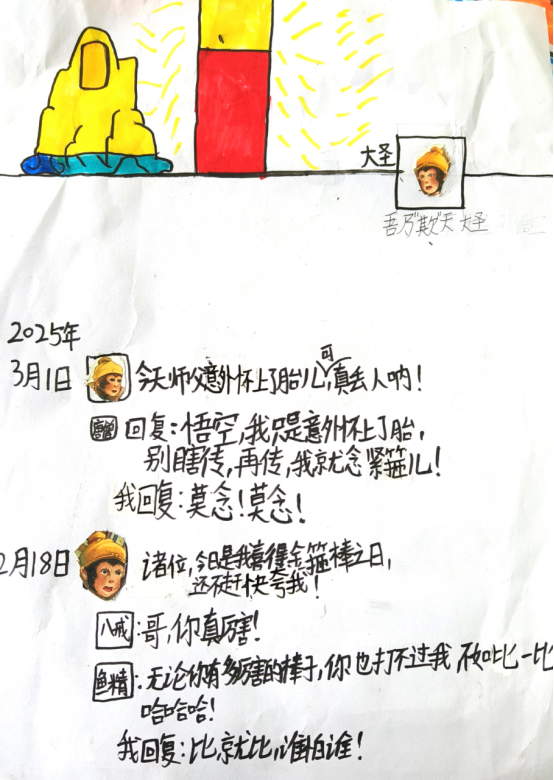 大圣
吾乃"欺"天大圣
2025年
3月1日 今天师父意外怀上了胎儿,可真丢人呐!
唐僧 回复:悟空,我只是意外怀上了胎,
别瞎传,再传,我就念紧箍儿!
我回复:莫念!莫念!
2月18日 诸位,今日是我喜得金箍棒之日,
还不赶快夸我!
八戒:哥,你真厉害!
鱼精:无论你有多厉害的棒子,你也打不过我 不如比一比
哈哈哈!
我回复:比就比,谁怕谁!